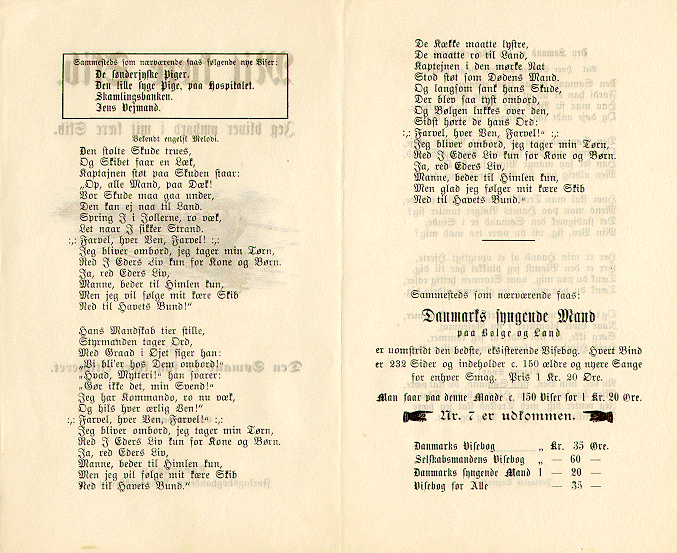 Sammesteds som nærværende faas følgende nye Viser:
De sønderjyske Piger.
Den lille syge Pige, paa Hospitalet.
Skamlingsbanken.
Jens Vejmand.
Bekendt engelsk Melodi.
Den stolte Skude trues,
Og Skibet faar en Læk,
Kaptajnen støt paa Skuden staar:
„Op, alle Mand, paa Dæk!
Vor Skude maa gaa under,
Den kan ej naa til Land.
Spring I i Jollerne, ro væk,
Let naar I sikker Strand.
:,: Farvel, hver Ven, Farvel! :,:
Jeg bliver ombord, jeg tager min Tørn,
Red I Eders Liv kun for Kone og Børn.
Ja, red Eders Liv,
Manne, beder til Himlen kun,
Men jeg vil følge mit kære Skib
Ned til Havets Bund!"
Hans Mandskab tier stille,
Styrmanden tager Ord,
Med Graad i Øjet siger han:
„Vi bli'er hos Dem ombord!"
„Hvad, Mytteri!" han svarer:
„Gør ikke det, min Svend!"
Jeg har Kommando, ro nu væk,
Og hils hver ærlig Ven!"
:,: Farvel, hver Ven, Farvel!" :,:
Jeg bliver ombord, jeg tager min Tørn,
Red I Eders Liv kun for Kone og Børn.
Ja, red Eders Liv,
Manne, beder til Himlen kun,
Men jeg vil følge mit kære Skib
Ned til Havets Bund."
De Kække maatte lystre,
De maatte ro til Land,
Kaptejnen i den mørke Nat
Stod støt som Dødens Mand.
Og langsom sank hans Skude,
Der blev saa tyst ombord,
Og Bølgen lukkes over den,
Sidst hørte de hans Ord:
:,: Farvel, hver Ven, Farvel!" :,:
Jeg bliver ombord, jeg tager min Tørn,
Red I Eders Liv kun for Kone og Børn.
Ja, red Eders Liv,
Manne, beder til Himlen kun,
Men glad jeg følger mit kære Skib
Ned til Havets Bund."
Sammesteds som nærværende faas:
Danmarks syngende Mand
paa Bølge og Land
er uomstridt den bedste, eksisterende Visebog. Hvert Bind
er 232 Sider og indeholder c. 150 ældre og nyere Sange
for enhver Smag. Pris 1 Kr. 20 Øre.
Man faar paa denne Maade c. 150 Viser for 1 Kr. 20 Øre.
Nr. 7 er udkommen.
Danmarks Visebog „ Kr. 35 Øre.
Selskabsmandens Visebog „ — 60 —
Danmarks syngende Mand 1 — 20 —
Visebog for Alle — 35 —